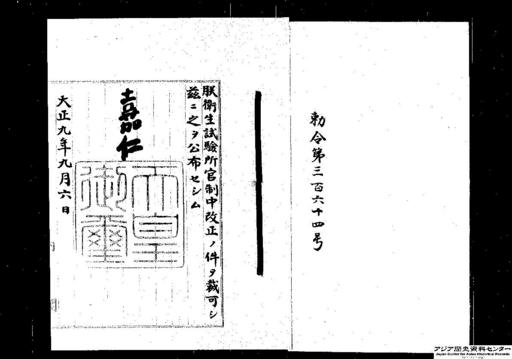 勅令第三百六十四号
朕衛生試験所官制中改正ノ件ヲ裁可シ
茲ニ之ヲ公布セシム
嘉仁
天皇
御璽
大正九年九月六日
アジア歴史資料センター
Japan Center for Asian Historical Records